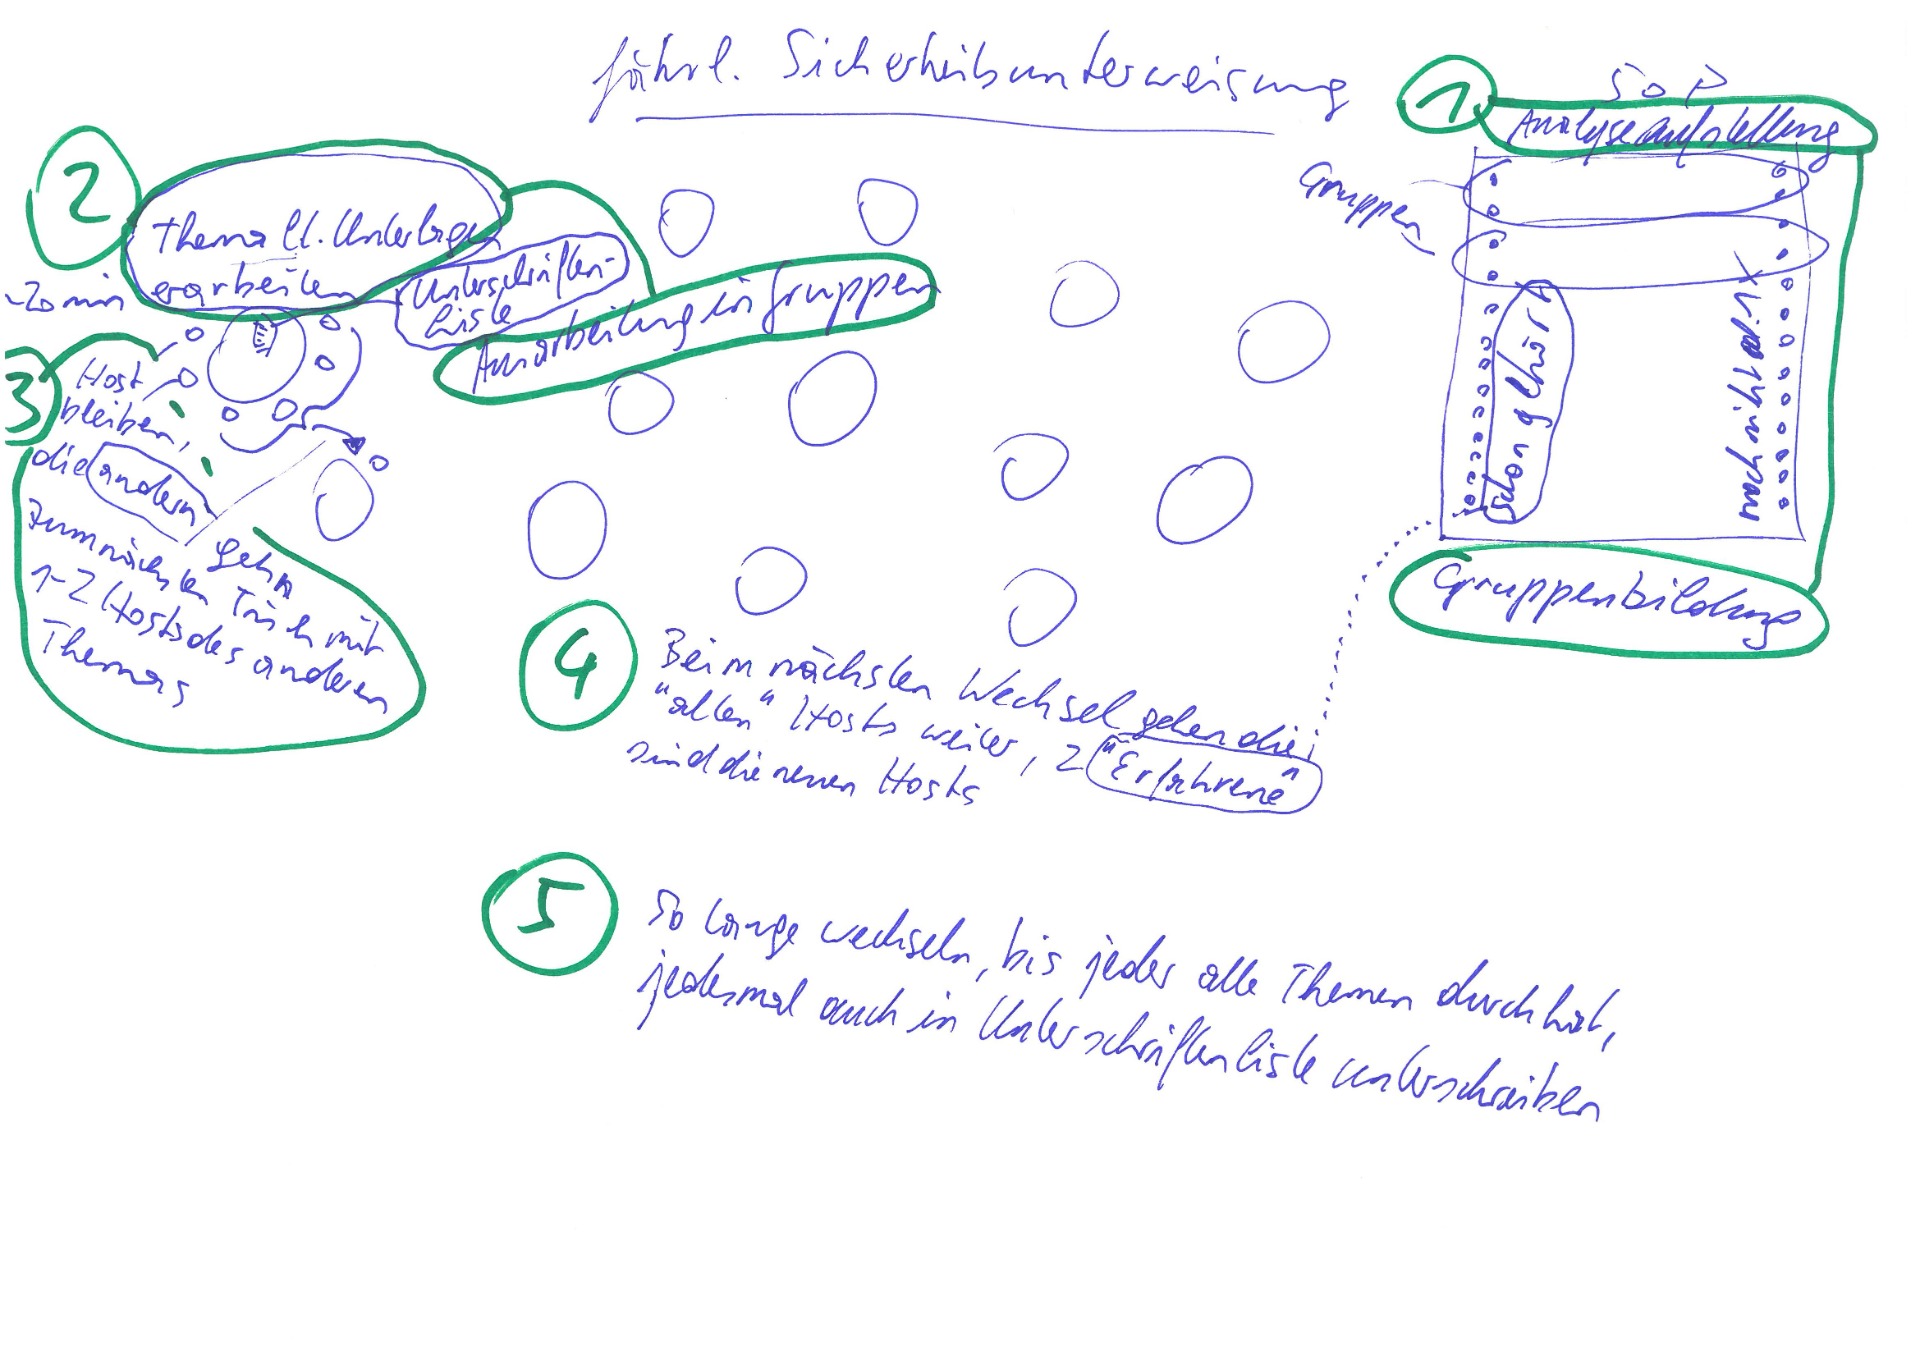 jährl. Sicherheitsunterweisung
1
SOP
Analyseaufstellung
Gruppen
schon gehört
noch nicht od. 1x
Gruppenbildung
2
Thema lt. Unterlagen
erarbeiten
~20 min
Unterschriften-
liste
Ausarbeitung in Gruppen
3
Host
bleiben,
die andern
gehn
zum nächsten Tisch mit
1-2 Hosts des anderen
Themas
4
Beim nächsten Wechsel gehen die
"alten" Hosts weiter, 2 "Erfahrene"
sind die neuen Hosts
5
So lange wechseln, bis jeder alle Themen durch hat,
jedesmal auch in Unterschriftenliste unterschreiben